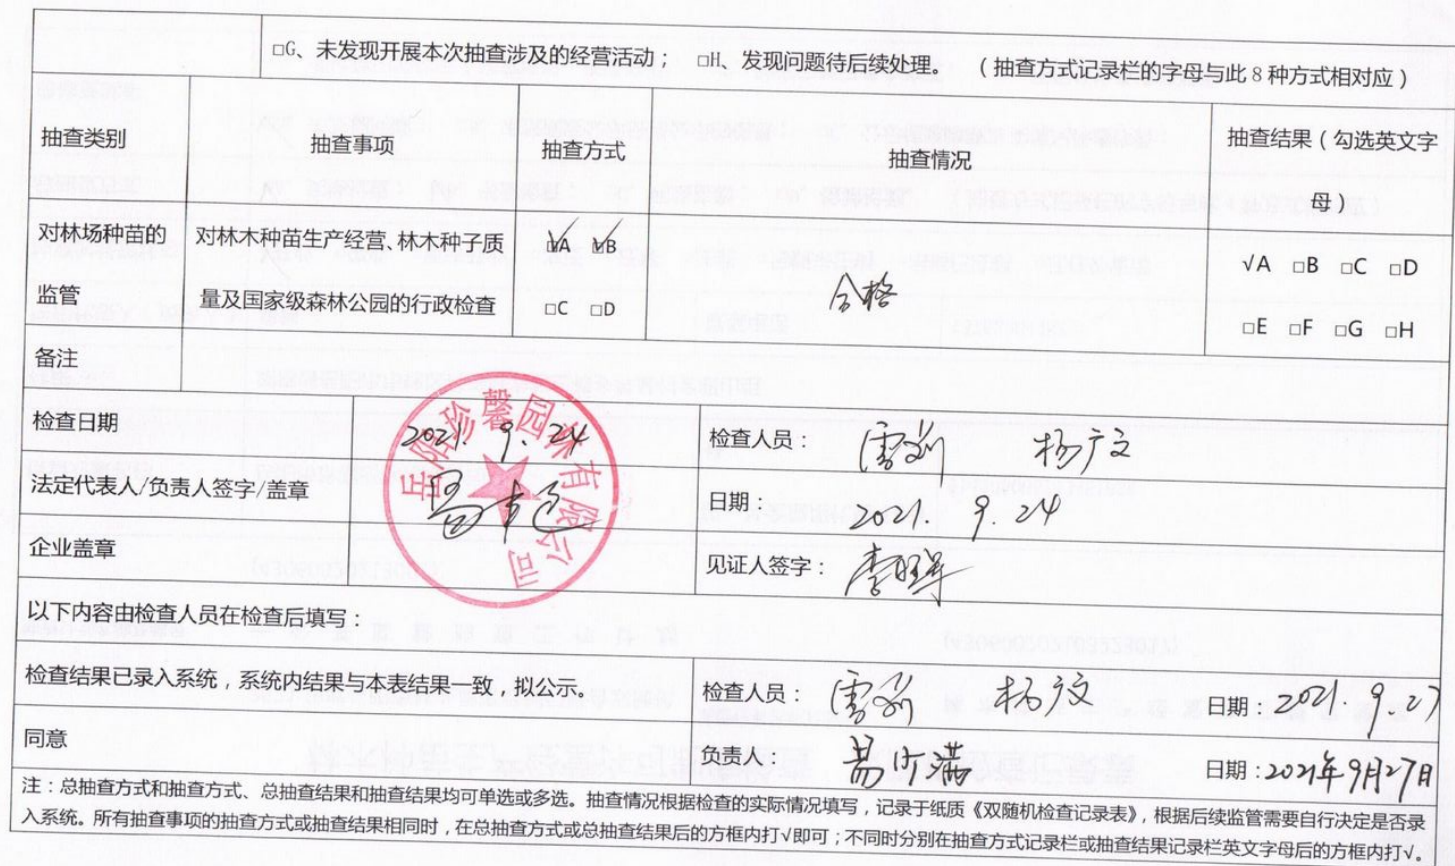 □G、未发现开展本次抽查涉及的经营活动； □H、发现问题待后续处理。 （抽查方式记录栏的字母与此8种方式相对应）
抽查类别 抽查事项 抽查方式 抽查情况 抽查结果（勾选英文字
母）
对林场种苗的 对林木种苗生产经营、林木种子质 √A √B
√A □B □C □D
监管 量及国家级森林公园的行政检查 □C □D 合格
□E □F □G □H
备注
检查日期 2021.9.24 检查人员： 杨广文
法定代表人/负责人签字/盖章 日期：2021.9.24
企业盖章 见证人签字：
岳阳珍馨园林有限公司
以下内容由检查人员在检查后填写：
检查结果已录入系统，系统内结果与本表结果一致，拟公示。 检查人员： 杨广文 日期：2021.9.27
同意 负责人： 日期：2021年9月27日
注：总抽查方式和抽查方式、总抽查结果和抽查结果均可单选或多选。抽查情况根据检查的实际情况填写，记录于纸质《双随机检查记录表》，根据后续监管需要自行决定是否录
入系统。所有抽查事项的抽查方式或抽查结果相同时，在总抽查方式或总抽查结果后的方框内打√即可；不同时分别在抽查方式记录栏或抽查结果记录栏英文字母后的方框内打√。